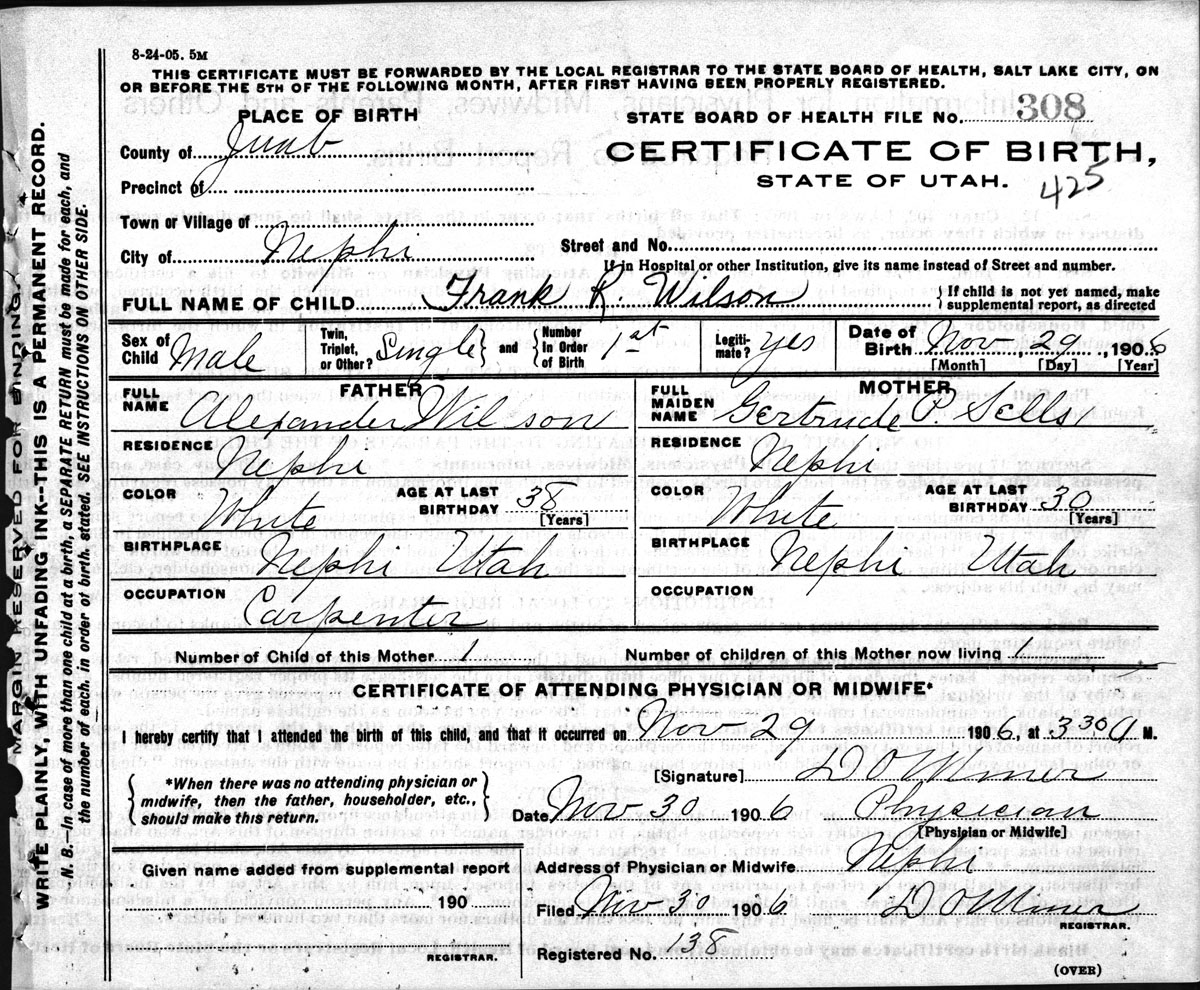 8-24-05. 5M
THIS CERTIFICATE MUST BE FORWARDED BY THE LOCAL REGISTRAR TO THE STATE BOARD OF HEALTH, SALT LAKE CITY, ON
OR BEFORE THE 5TH OF THE FOLLOWING MONTH, AFTER FIRST HAVING BEEN PROPERLY REGISTERED.
PLACE OF BIRTH
STATE BOARD OF HEALTH FILE No. 308
County of Juab
CERTIFICATE OF BIRTH,
STATE OF UTAH.
425
Precinct of
Town or Village of
City of Nephi
Street and No.
If in Hospital or other Institution, give its name instead of Street and number.
FULL NAME OF CHILD Frank K. Wilson
If child is not yet named, make
supplemental report, as directed
Sex of Child Male
Twin, Triplet, or Other? Single
and Number In Order of Birth 1st
Legitimate? yes
Date of Birth Nov, 29, 1906
[Month] [Day] [Year]
FATHER
FULL NAME Alexander Wilson
RESIDENCE Nephi
COLOR White
AGE AT LAST BIRTHDAY 38
[Years]
BIRTHPLACE Nephi Utah
OCCUPATION Carpenter
MOTHER
FULL MAIDEN NAME Gertrude P. Sells
RESIDENCE Nephi
COLOR White
AGE AT LAST BIRTHDAY 30
[Years]
BIRTHPLACE Nephi Utah
OCCUPATION
Number of Child of this Mother 1
Number of children of this Mother now living 1
CERTIFICATE OF ATTENDING PHYSICIAN OR MIDWIFE*
I hereby certify that I attended the birth of this child, and that it occurred on Nov 29 1906, at 3 30 A. M.
*When there was no attending physician or
midwife, then the father, householder, etc.,
should make this return.
[Signature] D O Miner
Date Nov 30 1906 Physician
[Physician or Midwife]
Given name added from supplemental report
190
REGISTRAR.
Address of Physician or Midwife Nephi
Filed Nov 30 1906 D O Miner
REGISTRAR.
Registered No. 38
(OVER)
MARGIN RESERVED FOR BINDING
WRITE PLAINLY, WITH UNFADING INK--THIS IS A PERMANENT RECORD.
N. B.--In case of more than one child at a birth, a SEPARATE RETURN must be made for each, and
the number of each, in order of birth, stated. SEE INSTRUCTIONS ON OTHER SIDE.